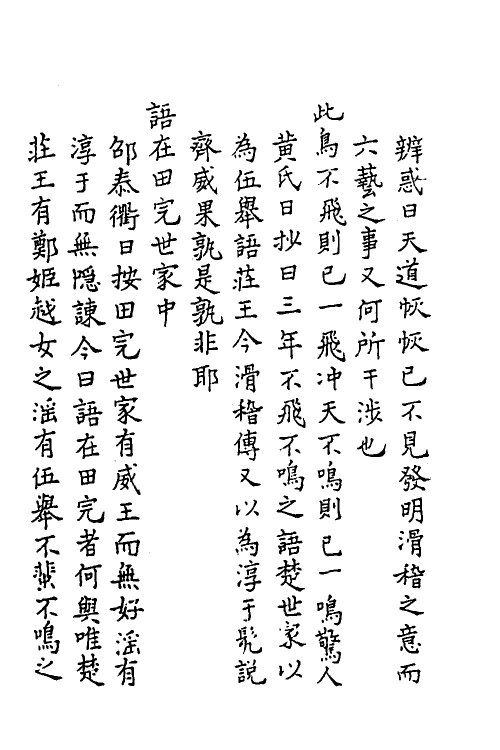 辨惑曰天道恢恢已不見發明滑稽之意而
六藝之事又何所干涉也
此鳥不飛則已一飛沖天不鳴則已一鳴驚人
黄氏日抄曰三年不飛不鳴之語楚世家以
為伍舉語莊王今滑稽傳又以為淳于髠説
齊威果孰是孰非耶
語在田完世家中
邵泰衢曰按田完世家有威王而無好滛有
淳于而無隠諌今曰語在田完者何與唯楚
莊王有鄭姬越女之滛有伍舉不蜚不鳴之